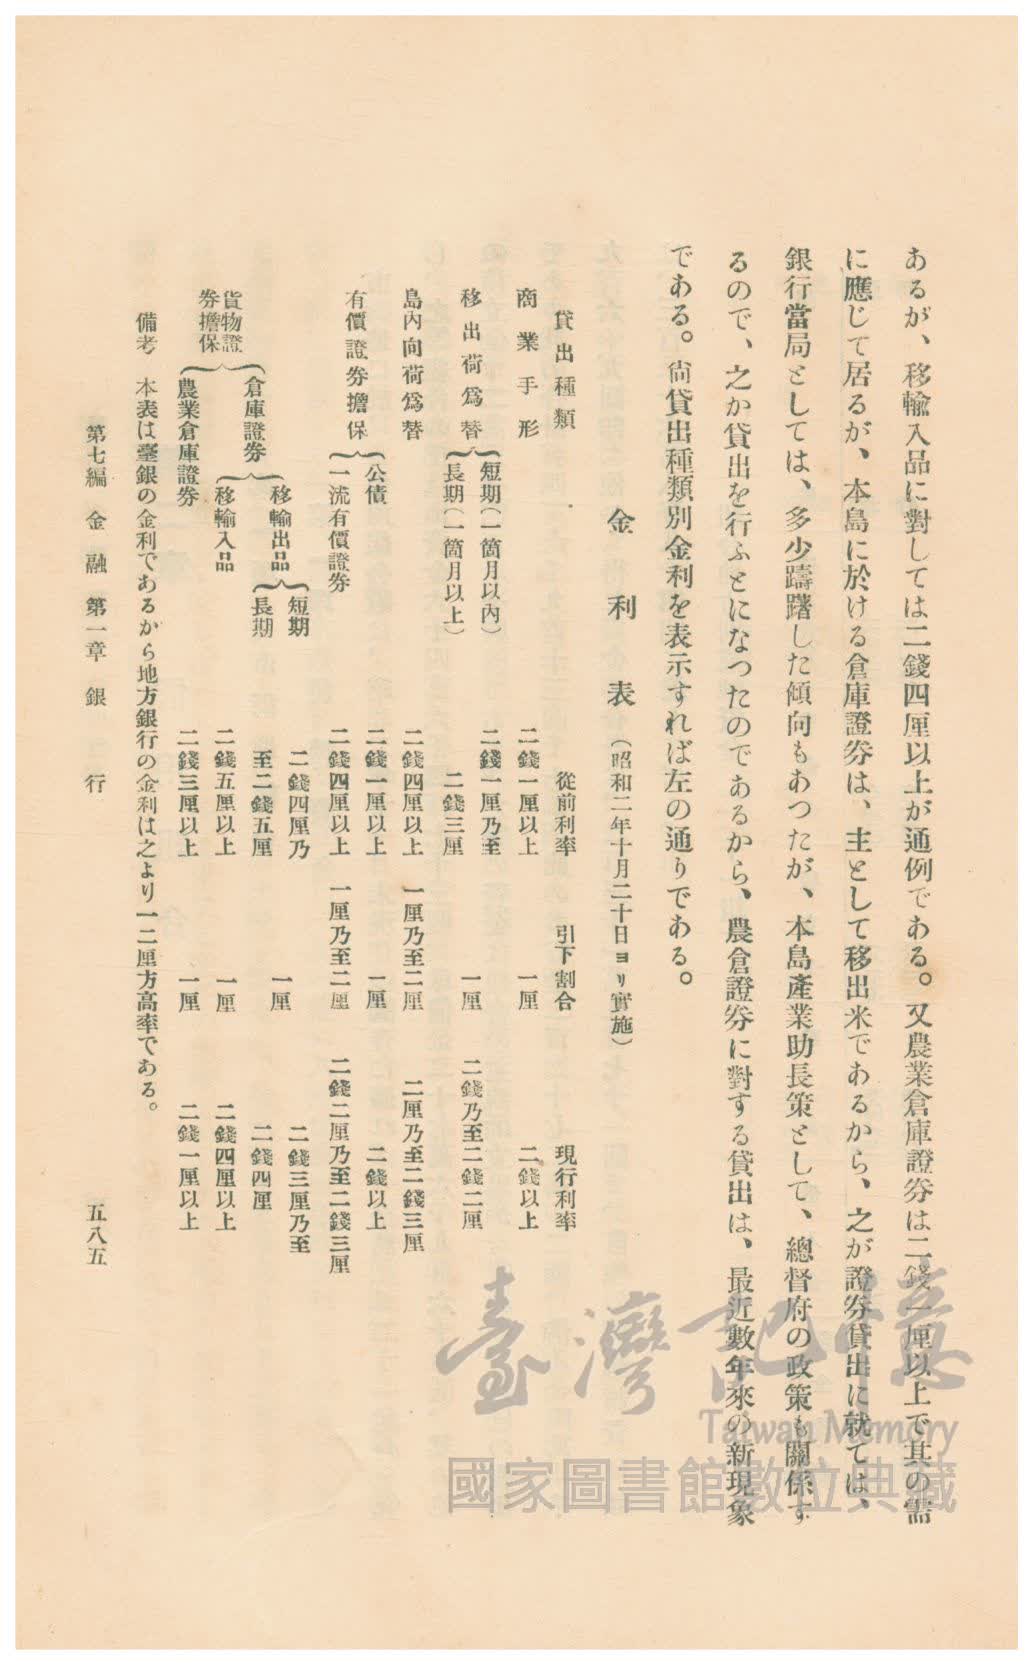 あるが、移輸入品に對しては二錢四厘以上が通例である。又農業倉庫證券は二錢一厘以上で其の需
に應じて居るが、本島に於ける倉庫證券は、主として移出米であるから、之が證券貸出に就ては、
銀行當局としては、多少躊躇した傾向もあつたが、本島產業助長策として、總督府の政策も關係す
るので、之か貸出を行ふとになつたのであるから、農倉證券に對する貸出は、最近數年來の新現象
である。尙貸出種類別金利を表示すれば左の通りである。
金利表（昭和二年十月二十日ヨリ實施）
貸出種類 從前利率 引下割合 現行利率
商業手形 二錢一厘以上 一厘 二錢以上
移出荷爲替 短期（一箇月以內） 二錢一厘乃至
長期（一箇月以上） 二錢三厘 一厘 二錢乃至二錢二厘
島內向荷爲替 二錢四厘以上 一厘乃至二厘 二厘乃至二錢三厘
有價證券擔保 公債 二錢一厘以上 一厘 二錢以上
一流有價證券 二錢四厘以上 一厘乃至二厘 二錢二厘乃至二錢三厘
貨物證券擔保 倉庫證券 移輸出品 短期 二錢四厘乃 一厘 二錢三厘乃至
長期 至二錢五厘 二錢四厘
移輸入品 二錢五厘以上 一厘 二錢四厘以上
農業倉庫證券 二錢三厘以上 一厘 二錢一厘以上
備考 本表は臺銀の金利であるから地方銀行の金利は之より一二厘方高率である。
第七編 金融 第一章 銀行 五八五
臺灣記憶
Taiwan Memory
國家圖書館數位典藏